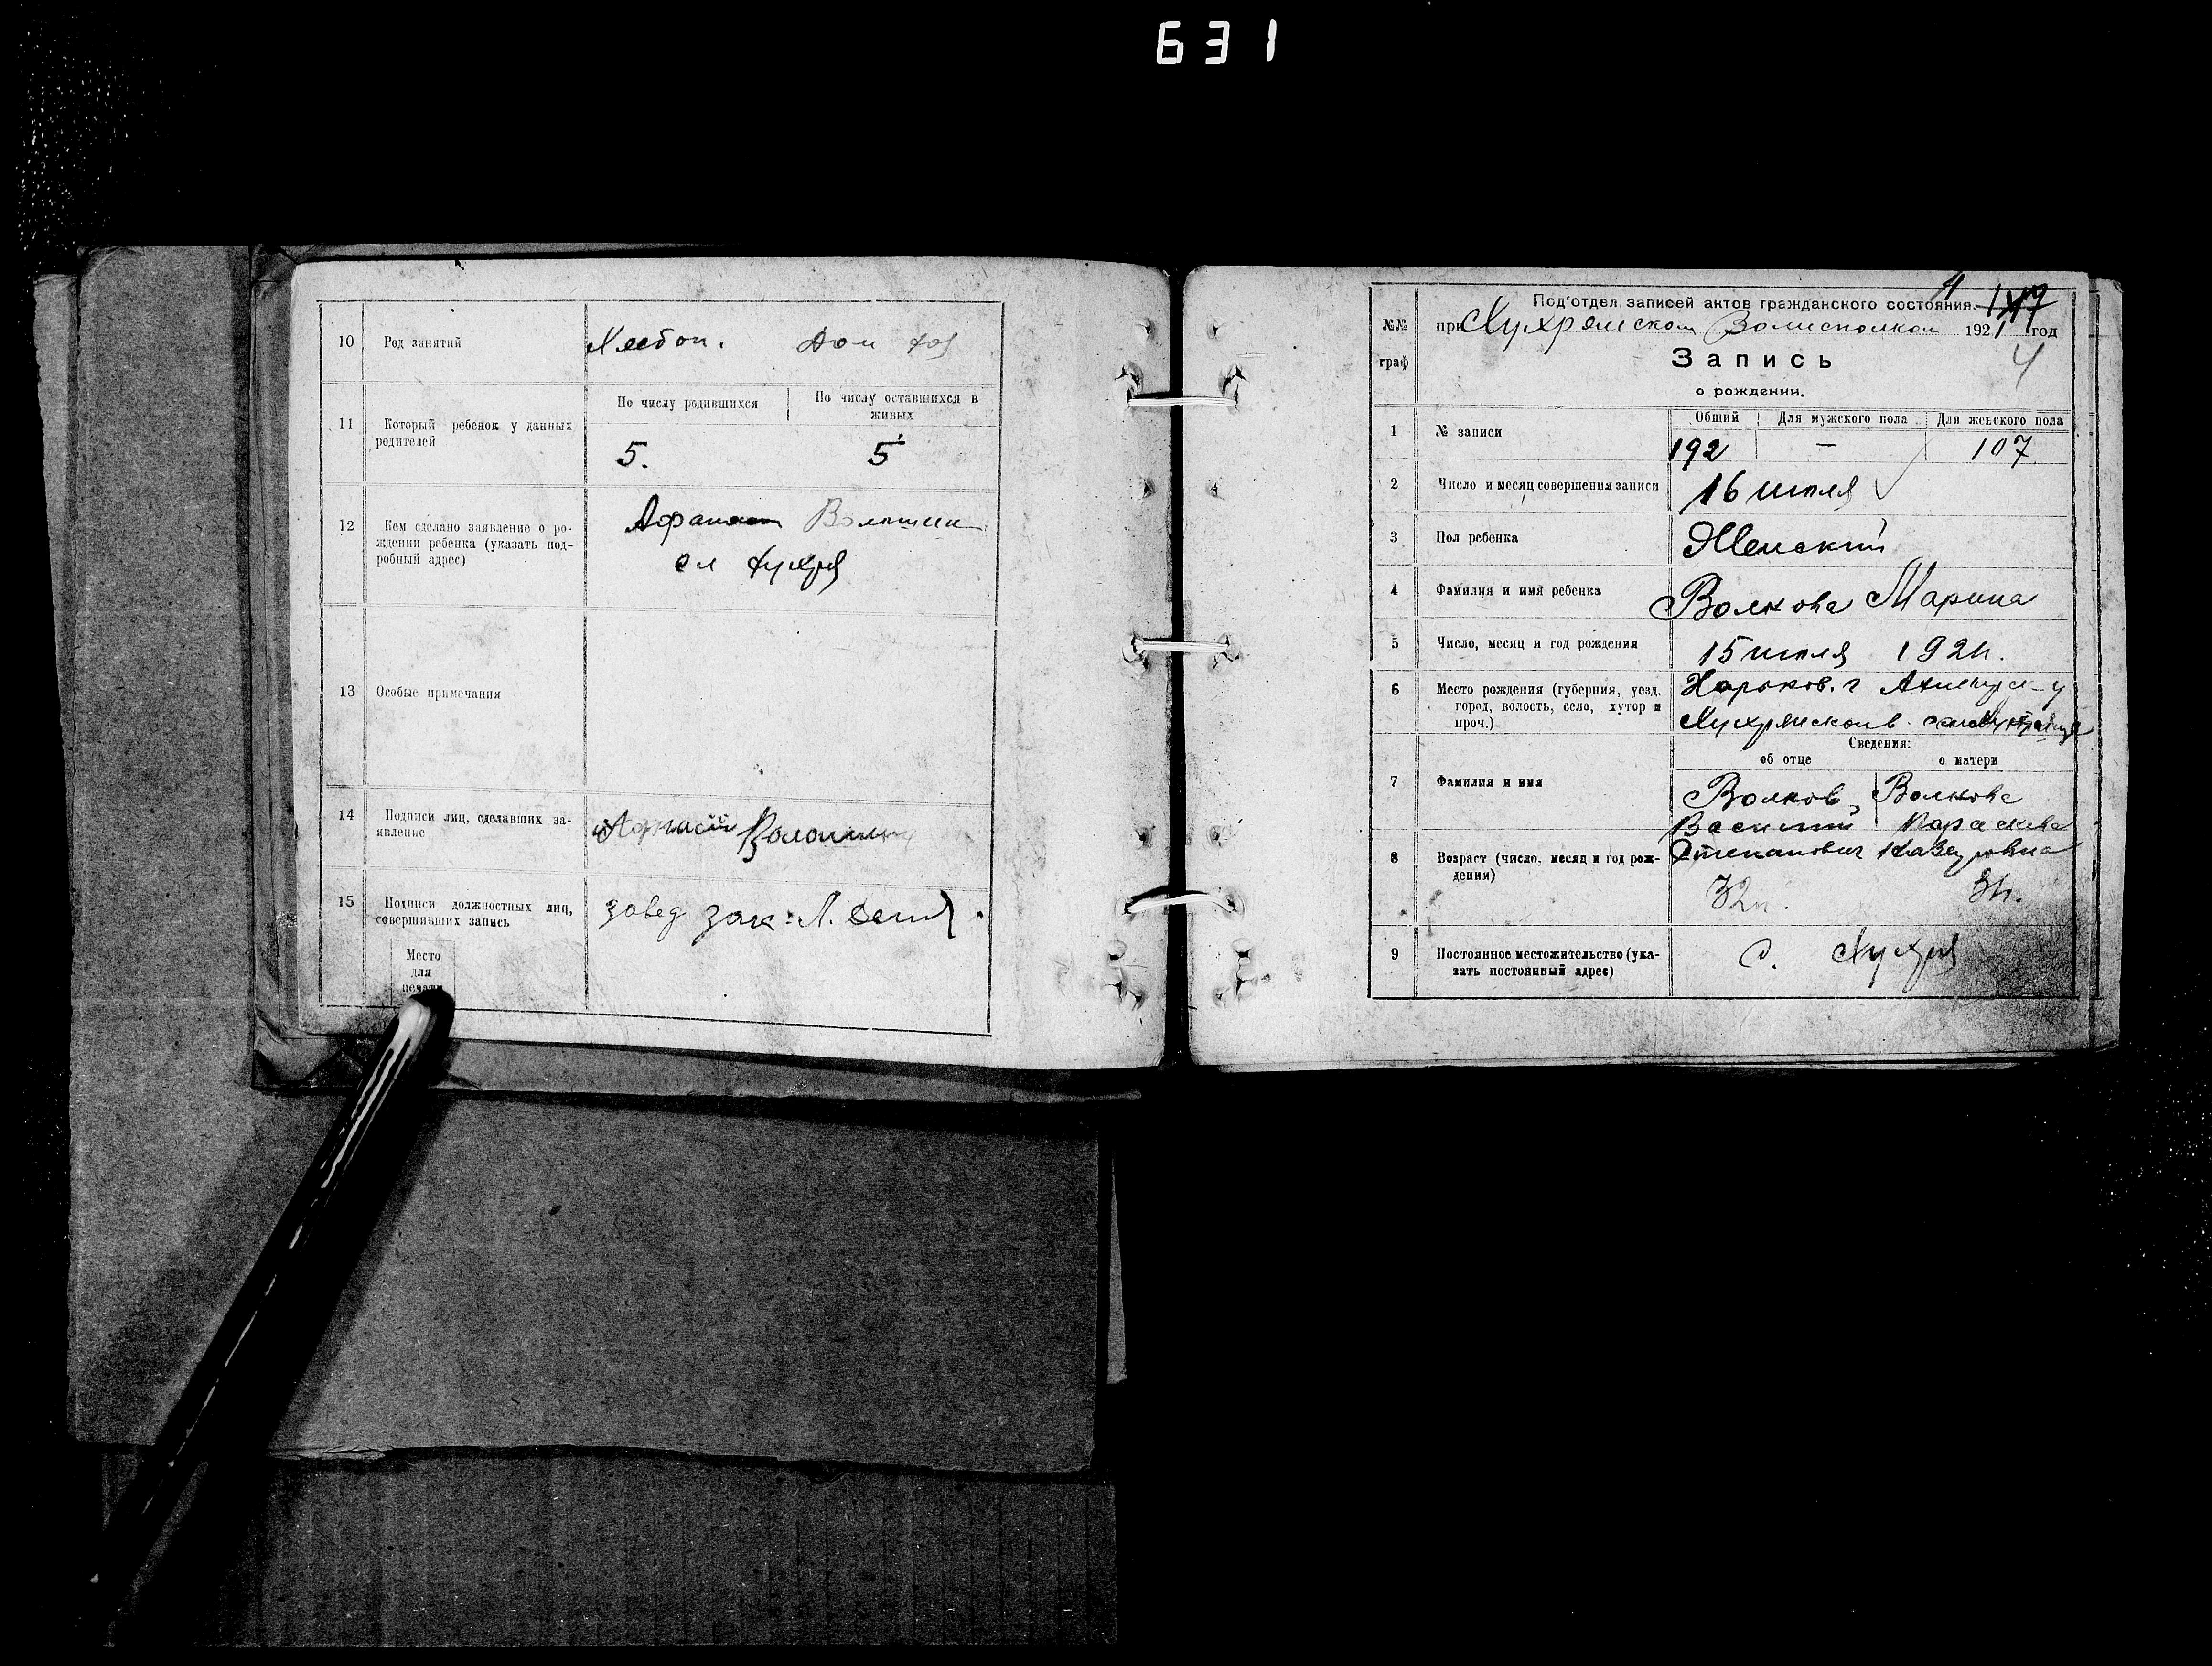 631
10 Род занятий Хлебоп. Дом хоз
11 Который ребенок у данных родителей
По числу родившихся По числу оставшихся в живых
5. 5
12 Кем сделано заявление о ро-
ждении ребенка (указать под-
робный адрес)
Волошин
сл Хухря
13 Особые примечания
14 Подписи лиц, сделавших за-
явление
Афнасій Волошин
15 Подписи должностных лиц,
совершивших запись
завед
Место
для
печати
Под'отдел записей актов гражданского состояния.
№№ при Хухрянском Волисполком 1921 год
граф Запись
4
о рождении.
Общий Для мужского пола Для женского пола
1 № записи 192 — 107
2 Число и месяц совершения записи 16 июля
3 Пол ребенка Женский
4 Фамилия и имя ребенка Волкова Марина
5 Число, месяц и год рождения 15 июля 1921.
6 Место рождения (губерния, уезд,
город, волость, село, хутор и
проч.)
Харьков. г Ахтырск. у
Хухрянской в.
Сведения:
об отце о матери
7 Фамилия и имя
Волков Волкова
Василий Параскева
Степанович
8 Возраст (число, месяц и год рож-
дения)
32
9 Постоянное местожительство (ука-
зать постоянный адрес)
с. Хухря